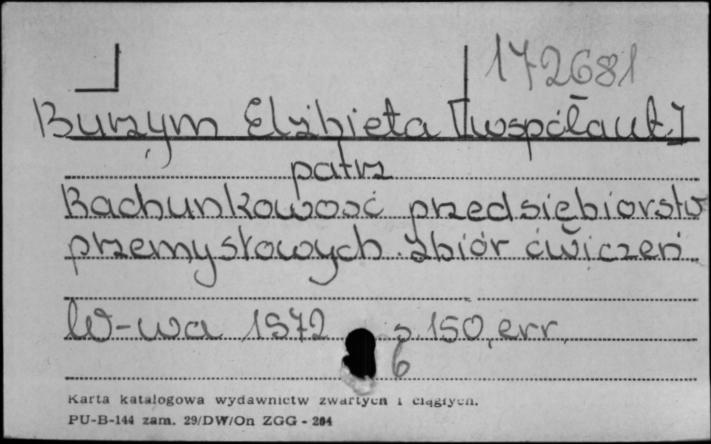 172681
Burzym Elżbieta [współaut.]
patrz
Rachunkowość przedsiębiorstw
przemysłowych. Zbiór ćwiczeń
W-wa 1972 s. 150, err.
6
Karta katalogowa wydawnictw zwartych i ciągłych.
PU-B-144 zam. 29/DW/On ZGG - 204